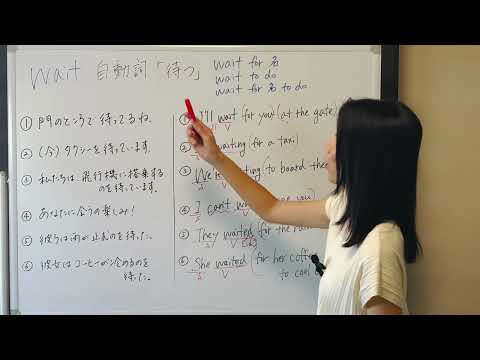 wait 自動詞「待つ」
wait for 名
wait to do
wait for 名 to do
① 門のところで待ってるね.
② (今)タクシーを待っています.
③ 私たちは、飛行機に搭乗する
のを待っています.
④ あなたに会うの楽しみ!
⑤ 彼らは雨が止むのを待った.
⑥ 彼女はコーヒーが冷めるのを
待った.
① I'll wait for you (at the gate)
waiting for a taxi
③ We're waiting (to board the
④ I can't
⑤ They waited for the rain
⑥ She waited (for her coffee
to cool